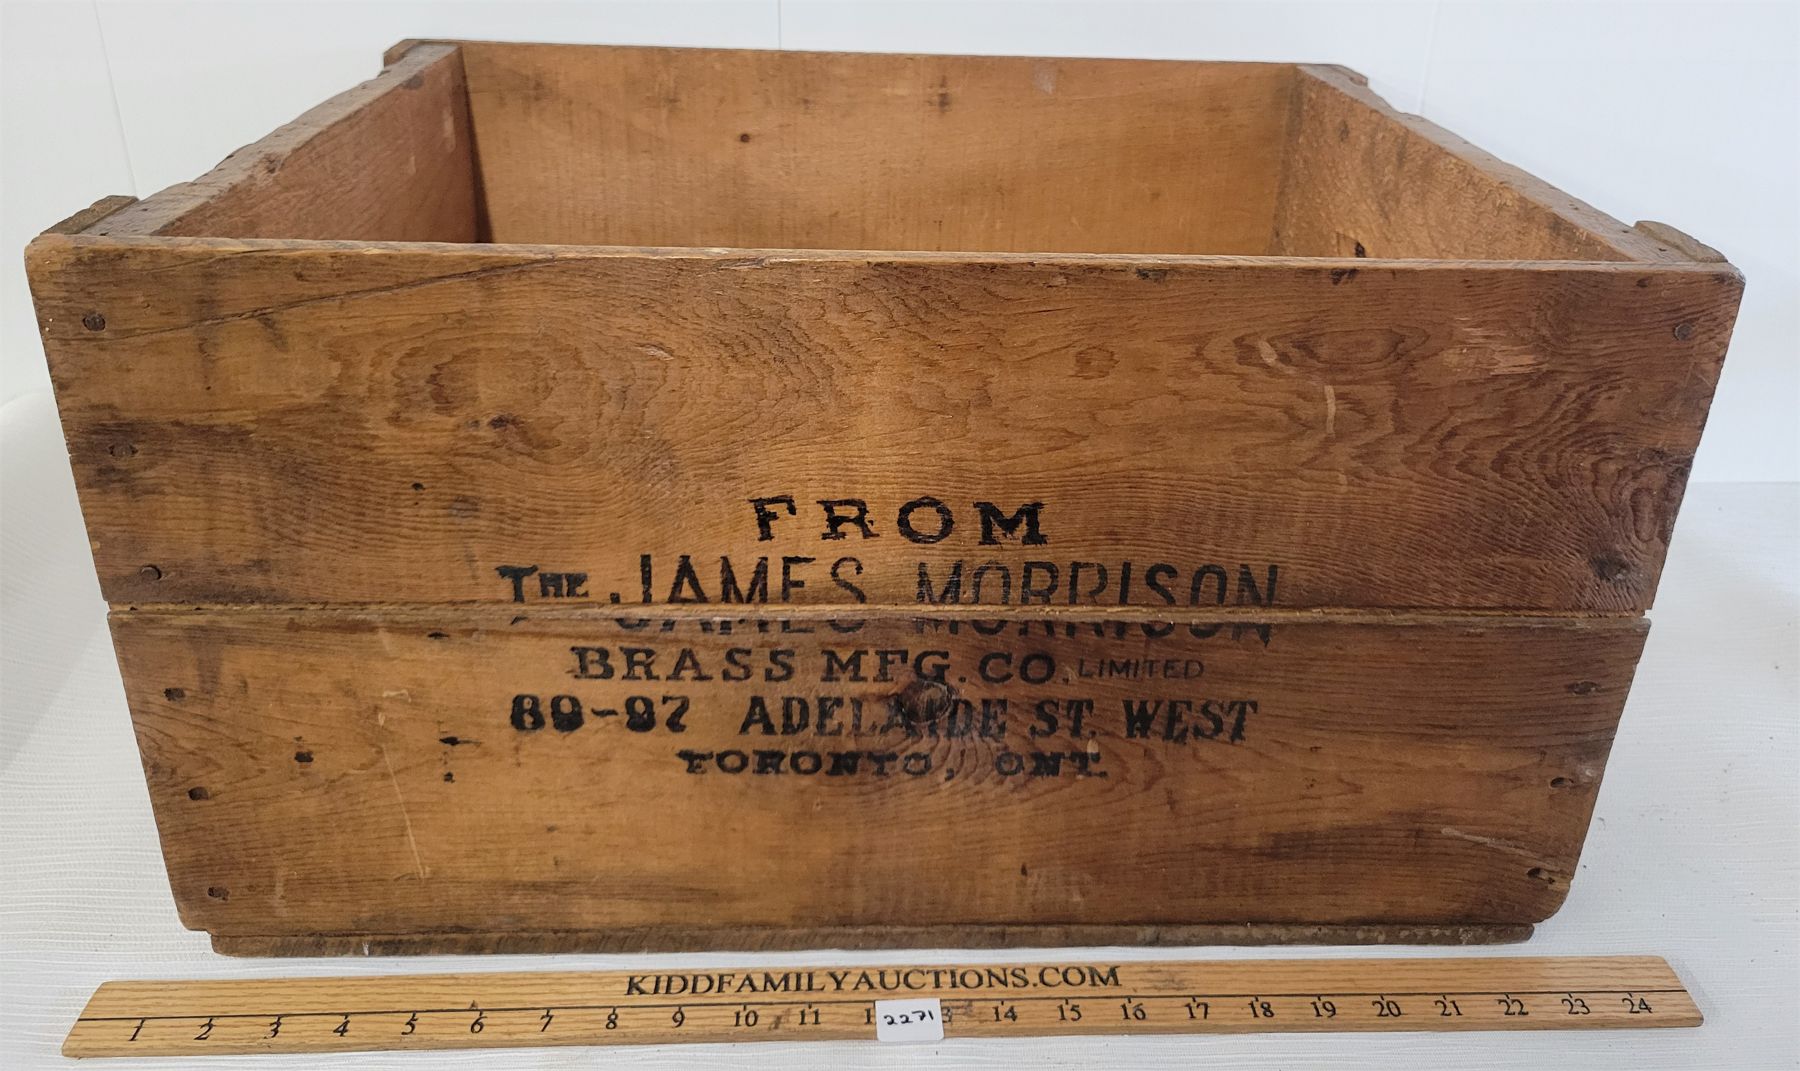 FROM
THE JAMES MORRISON
BRASS MFG. CO. LIMITED
89-97 ADELAIDE ST. WEST
TORONTO, ONT.
KIDDFAMILYAUCTIONS.COM
1 2 3 4 5 6 7 8 9 10 11 1 2271 3 14 15 16 17 18 19 20 21 22 23 24